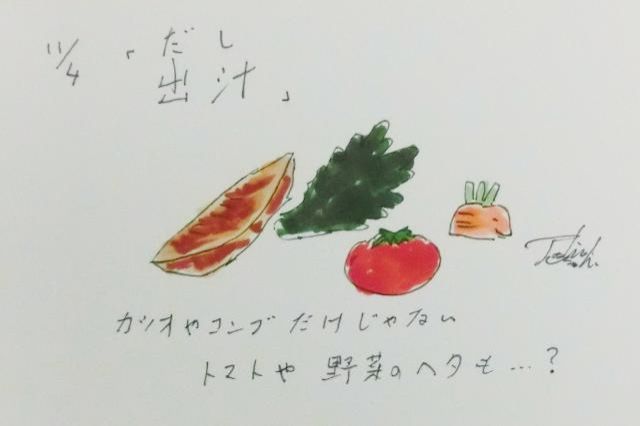 11/4 「出汁」
だし
カツオやコンブだけじゃない
トマトや野菜のヘタも…?